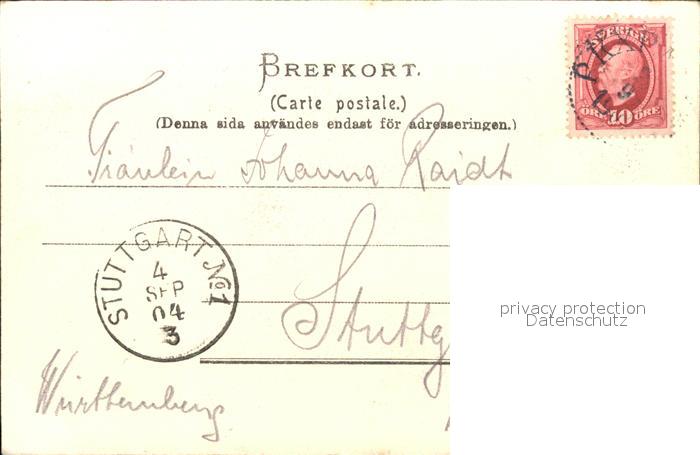 BREFKORT.
(Carte postale.)
(Denna sida användes endast för adresseringen.)
SVERIGE
PKXP
10
ÖRE ÖRE
Fräulein Johanna Raidt
STUTTGART №1
4
SEP
04
3
Stuttg
Württemberg
privacy protection
Datenschutz